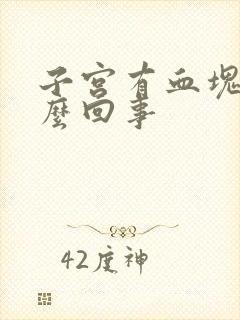 子宫有血块
麼回事
42度神